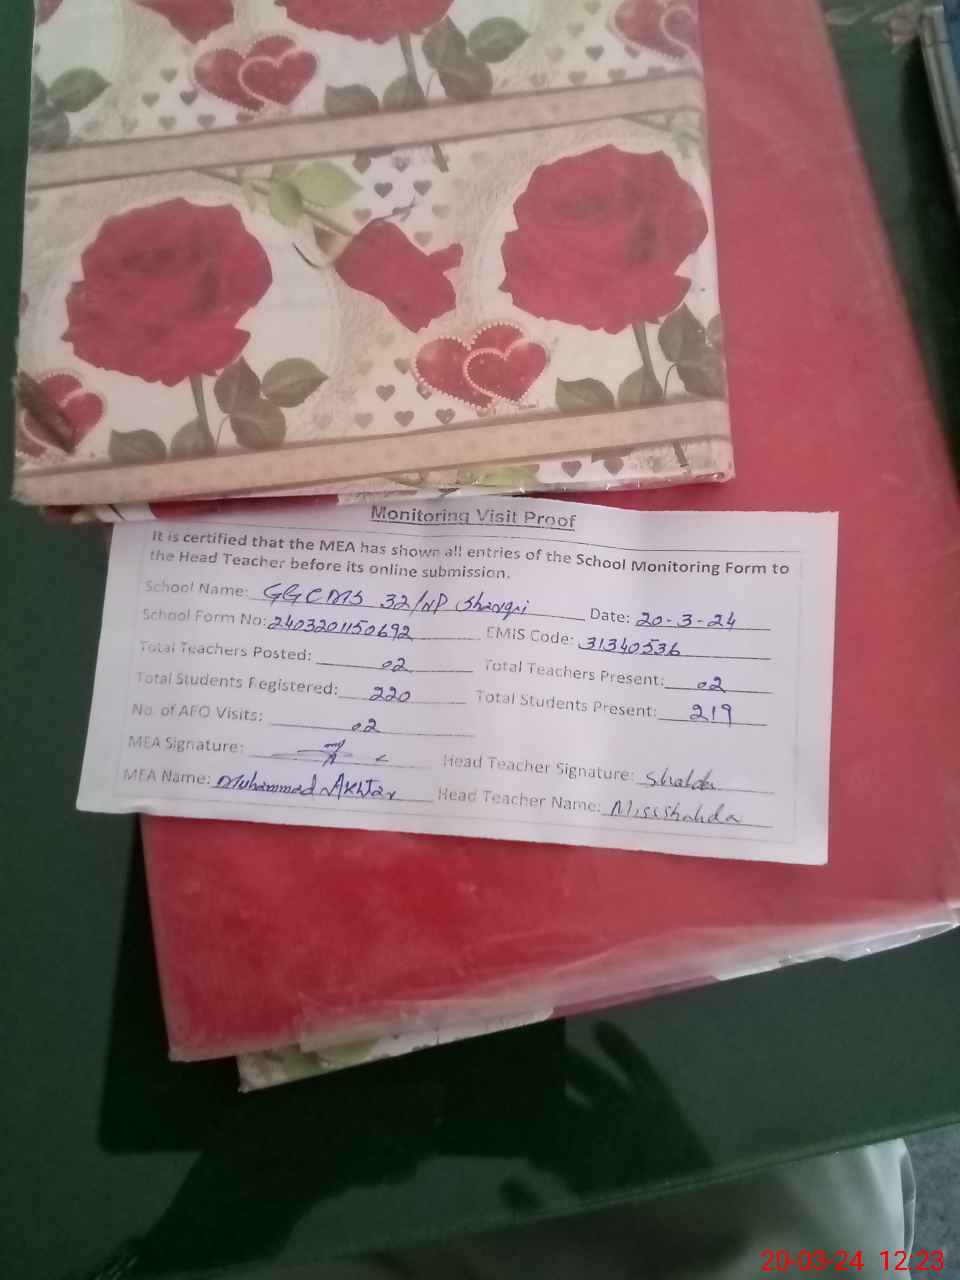 Monitoring Visit Proof
It is certified that the MEA has shown all entries of the School Monitoring Form to
the Head Teacher before its online submission.
School Name: GGCMS 32/NP Shangri Date: 20-3-24
School Form No: 2403201150692 EMIS Code: 31340536
Total Teachers Posted: 02 Total Teachers Present: 02
Total Students Registered: 220 Total Students Present: 219
No. of AEO Visits: 02
MEA Signature: Head Teacher Signature: Shahda
MEA Name: Muhammad Akhtar Head Teacher Name: Miss Shahda
20-03-24 12:23